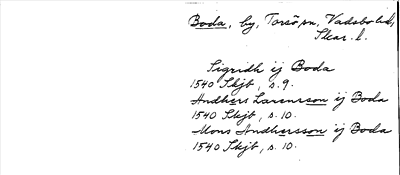 Boda, by, Torsö sn, Vadsbo hd,
Skar. l.
Sigridh ij Boda
1540 Skjt, s. 9.
Andhers Larensson ij Boda
1540 Skjt, s. 10.
Mons Andhersson ij Boda
1540 Skjt, s. 10.